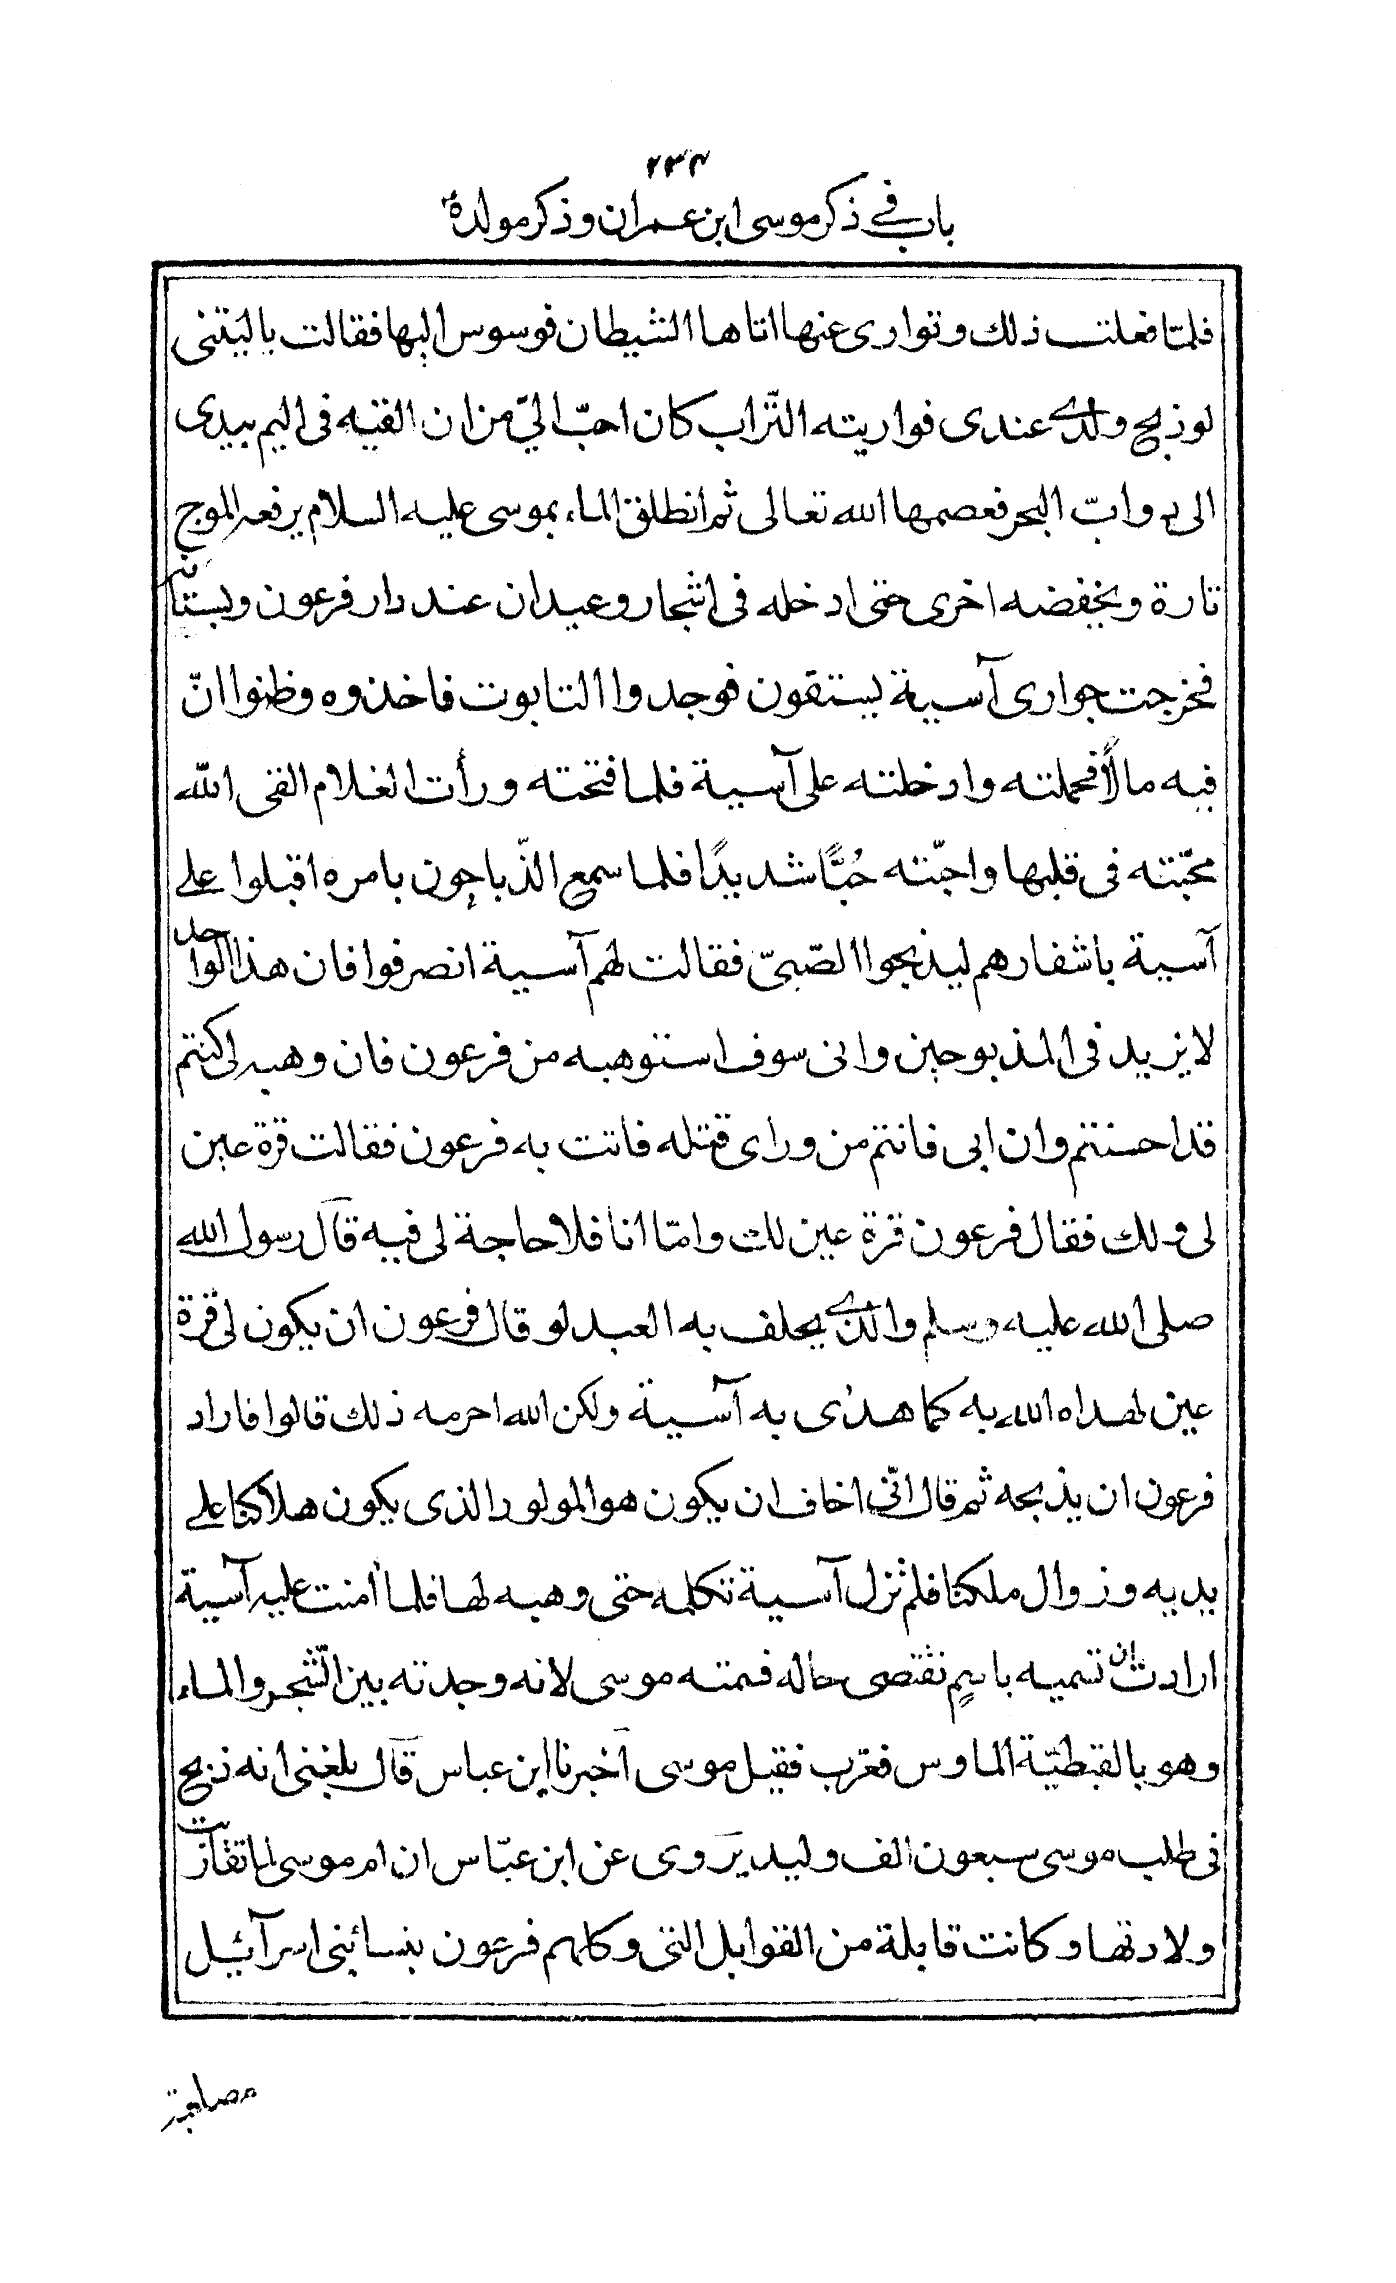 ٢٣٤
باب في ذكر موسى ابن عمران وذكر مولده
فلمّا فعلت ذلك وتوارى عنها اتاها الشيطان فوسوس اليها فقالت ياليتنى
لو ذبح ولدي عندى فواريته التّراب كان احبّ اليّ من ان القيه فى اليم بيدى
الى دوابّ البحر فعصمها الله تعالى ثم انطلق الماء بموسى عليه السلام يرفعه الموج
تارة ويخفضه اخرى حتى ادخله فى اشجار وعيدان عند دار فرعون وبستانه
فخرجت جوارى آسية يستقون فوجدوا التابوت فاخذوه وظنوا انّ
فيه مالاً فحملته وادخلته على آسية فلما فتحته ورأت الغلام القى الله
محبّته فى قلبها واحبّته حُبًّا شديدًا فلما سمع الذّباحون بامره اقبلوا على
آسية باشفارهم ليذبحوا الصّبىّ فقالت لهم آسية انصرفوا فان هذا الواحد
لا يزيد فى المذبوحين وانى سوف استوهبه من فرعون فان وهبه لى كنتم
قد احسنتم وان ابى فانتم من وراى قتله فاتت به فرعون فقالت قرة عين
لى ولك فقال فرعون قرة عين لك وامّا انا فلا حاجة لى فيه قال رسول الله
صلى الله عليه وسلم والذي يحلف به العبد لو قال فرعون ان يكون لى قرة
عين لهداه الله به كما هدى به آسية ولكن الله احرمه ذلك قالوا فاراد
فرعون ان يذبحه ثم قال انّى اخاف ان يكون هو المولود الذى يكون هلاكنا على
يديه وزوال ملكنا فلم تزل آسية تكلمه حتى وهبه لها فلما أمنت عليه آسية
ارادت ان تسميه باسمٍ تقتضى حاله فسمته موسى لانه وجدته بين الشّجر والماء
وهو بالقبطيّة الماوس فعرّب فقيل موسى اخبرنا ابن عباس قال بلغنى انه ذبح
فى طلب موسى سبعون الف وليد يروى عن ابن عبّاس ان ام موسى لما تقاربت
ولادتها وكانت قابلة من القوابل التى وكلهم فرعون بنسائبنى اسرآئيل